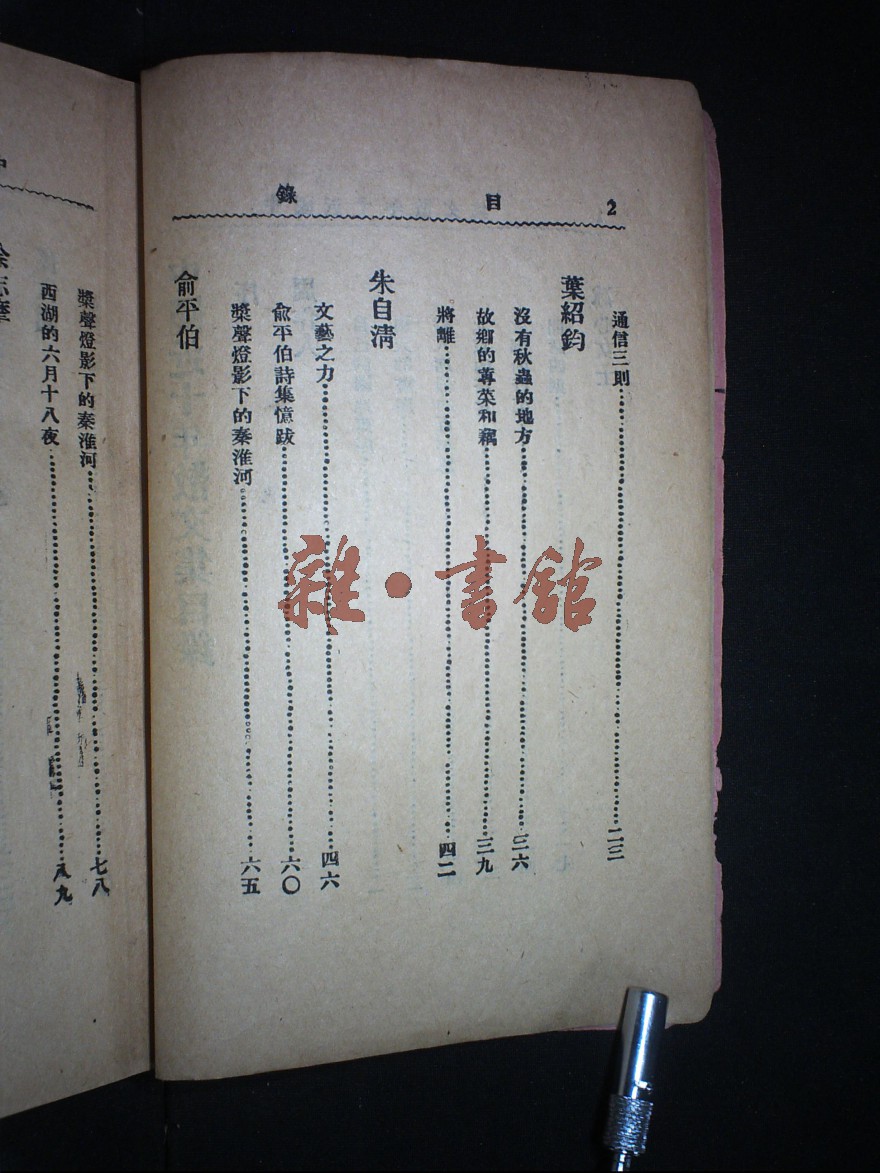 2
目錄
通信三則 二三
葉紹鈞
沒有秋蟲的地方 三六
故鄉的蓴菜和藕 三九
將離 四二
朱自淸
文藝之力 四六
俞平伯詩集憶跋 六〇
槳聲燈影下的秦淮河 六五
俞平伯
槳聲燈影下的秦淮河 七八
西湖的六月十八夜 八九
徐志摩
雜·書舘